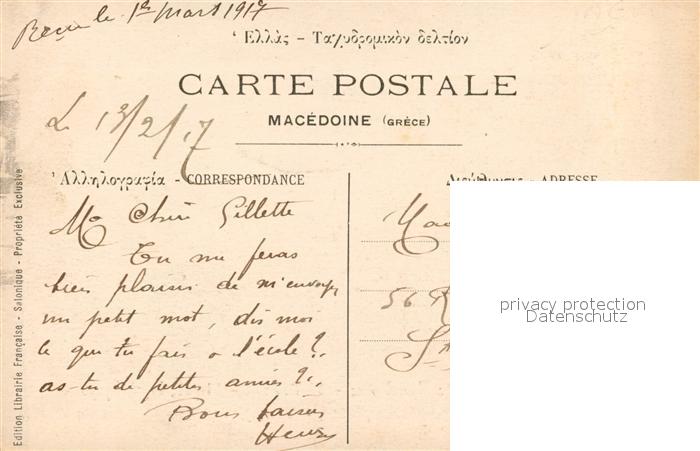 Reçu le 1er Mars 1917
Ἑλλὰς – Ταχυδρομικὸν δελτίον
CARTE POSTALE
MACÉDOINE (GRÈCE)
Le 13/2/17
Ἀλληλογραφία - CORRESPONDANCE
Διεύθυνσις - ADRESSE
Ma Chère Gillette
Tu me feras
bien plaisir de m'envoyer
un petit mot, dis moi
ce que tu fais a l'école?.
as-tu de petites amies?..
Bons baisers
Henry
56 R
Edition Librairie Française - Salonique - Propriété Exclusive
privacy protection
Datenschutz